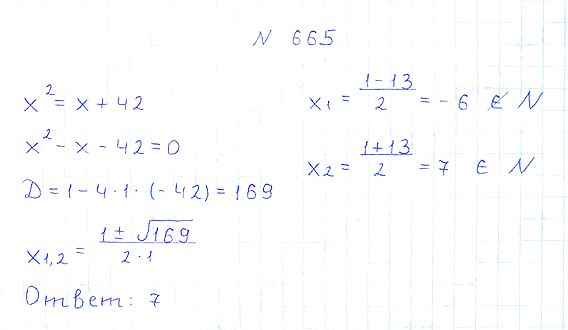 N 665
x² = x + 42
x² - x - 42 = 0
D = 1 - 4 · 1 · (-42) = 169
x₁,₂ = (1 ± √169) / (2 · 1)
Ответ: 7
x₁ = (1 - 13) / 2 = -6 ∉ N
x₂ = (1 + 13) / 2 = 7 ∈ N